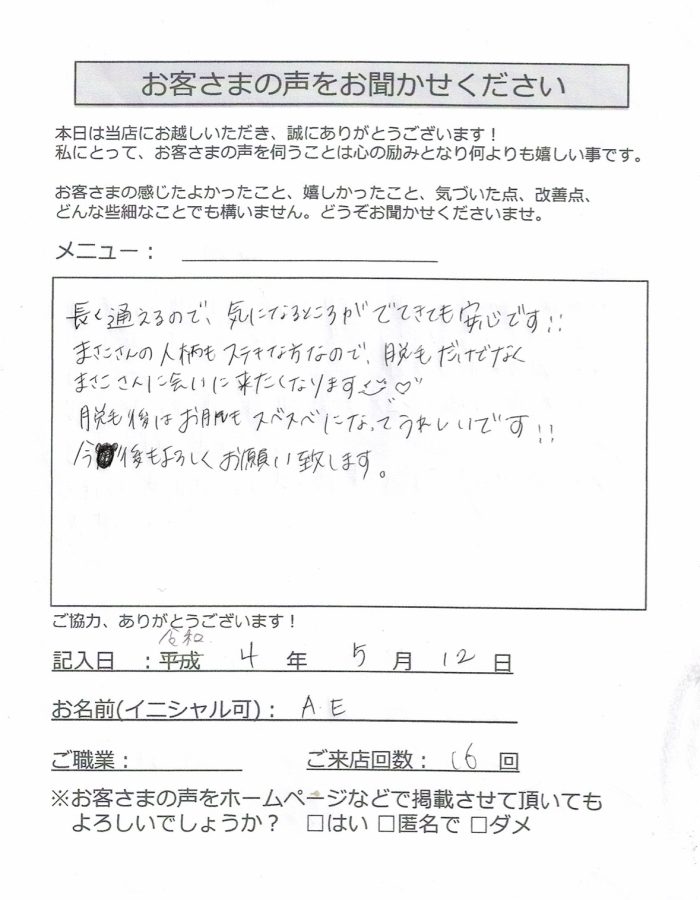 お客さまの声をお聞かせください
本日は当店にお越しいただき、誠にありがとうございます！
私にとって、お客さまの声を伺うことは心の励みとなり何よりも嬉しい事です。
お客さまの感じたよかったこと、嬉しかったこと、気づいた点、改善点、
どんな些細なことでも構いません。どうぞお聞かせくださいませ。
メニュー：
長く通えるので、気になるところがでてきても安心です!!
まさこさんの人柄もステキな方なので、脱毛だけでなく
まさこさんに会いに来たくなります♡
脱毛後はお肌もスベスベになってうれしいです!!
今後もよろしくお願い致します。
ご協力、ありがとうございます！
令和
記入日 ：平成 4 年 5 月 12 日
お名前(イニシャル可)： A.E
ご職業： ご来店回数： 16 回
※お客さまの声をホームページなどで掲載させて頂いても
よろしいでしょうか？ □はい □匿名で □ダメ